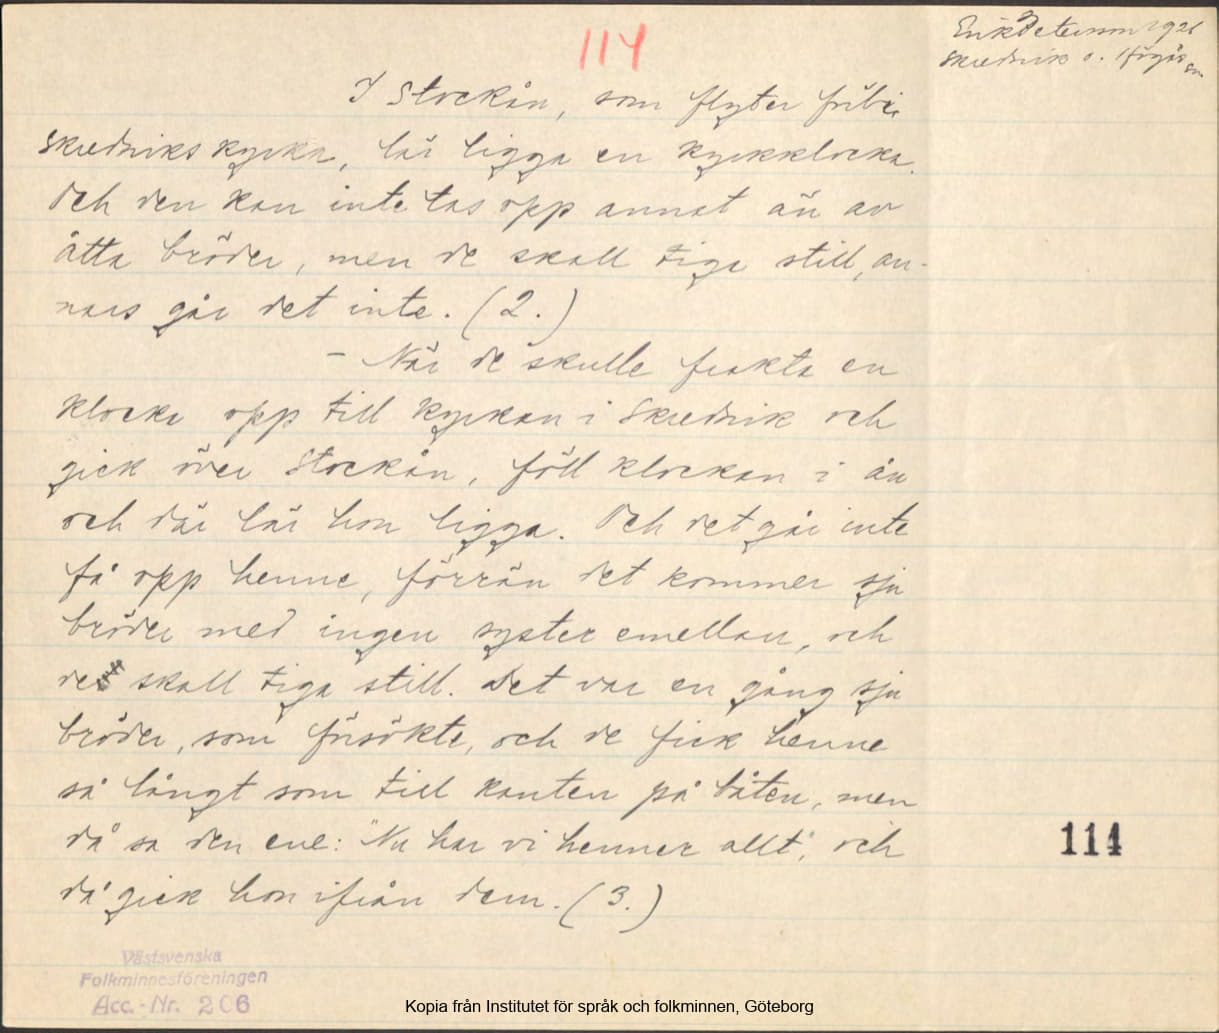 114
Erik Peterson 1921
Skredsvik o. Högås sn
I Stockån, som flyter förbi
Skredsviks kyrka, lär ligga en kyrkklocka.
Och den kan inte tas opp annat än av
åtta bröder, men de skall tiga still, an-
nars går det inte. (2.)
- När de skulle frakta en
klocka opp till kyrkan i Skredsvik och
gick över Stockån, föll klockan i ån
och där lär hon ligga. Och det går inte
få opp henne, förrän det kommer sju
bröder med ingen syster emellan, och
de skall tiga still. Det var en gång sju
bröder, som försökte, och de fick henne
så långt som till kanten på båten, men
då sa den ene: "Nu har vi henner allt", och
då gick hon ifrån dem. (3.)
114
Västsvenska
Folkminnesföreningen
Acc.-Nr. 206
Kopia från Institutet för språk och folkminnen, Göteborg